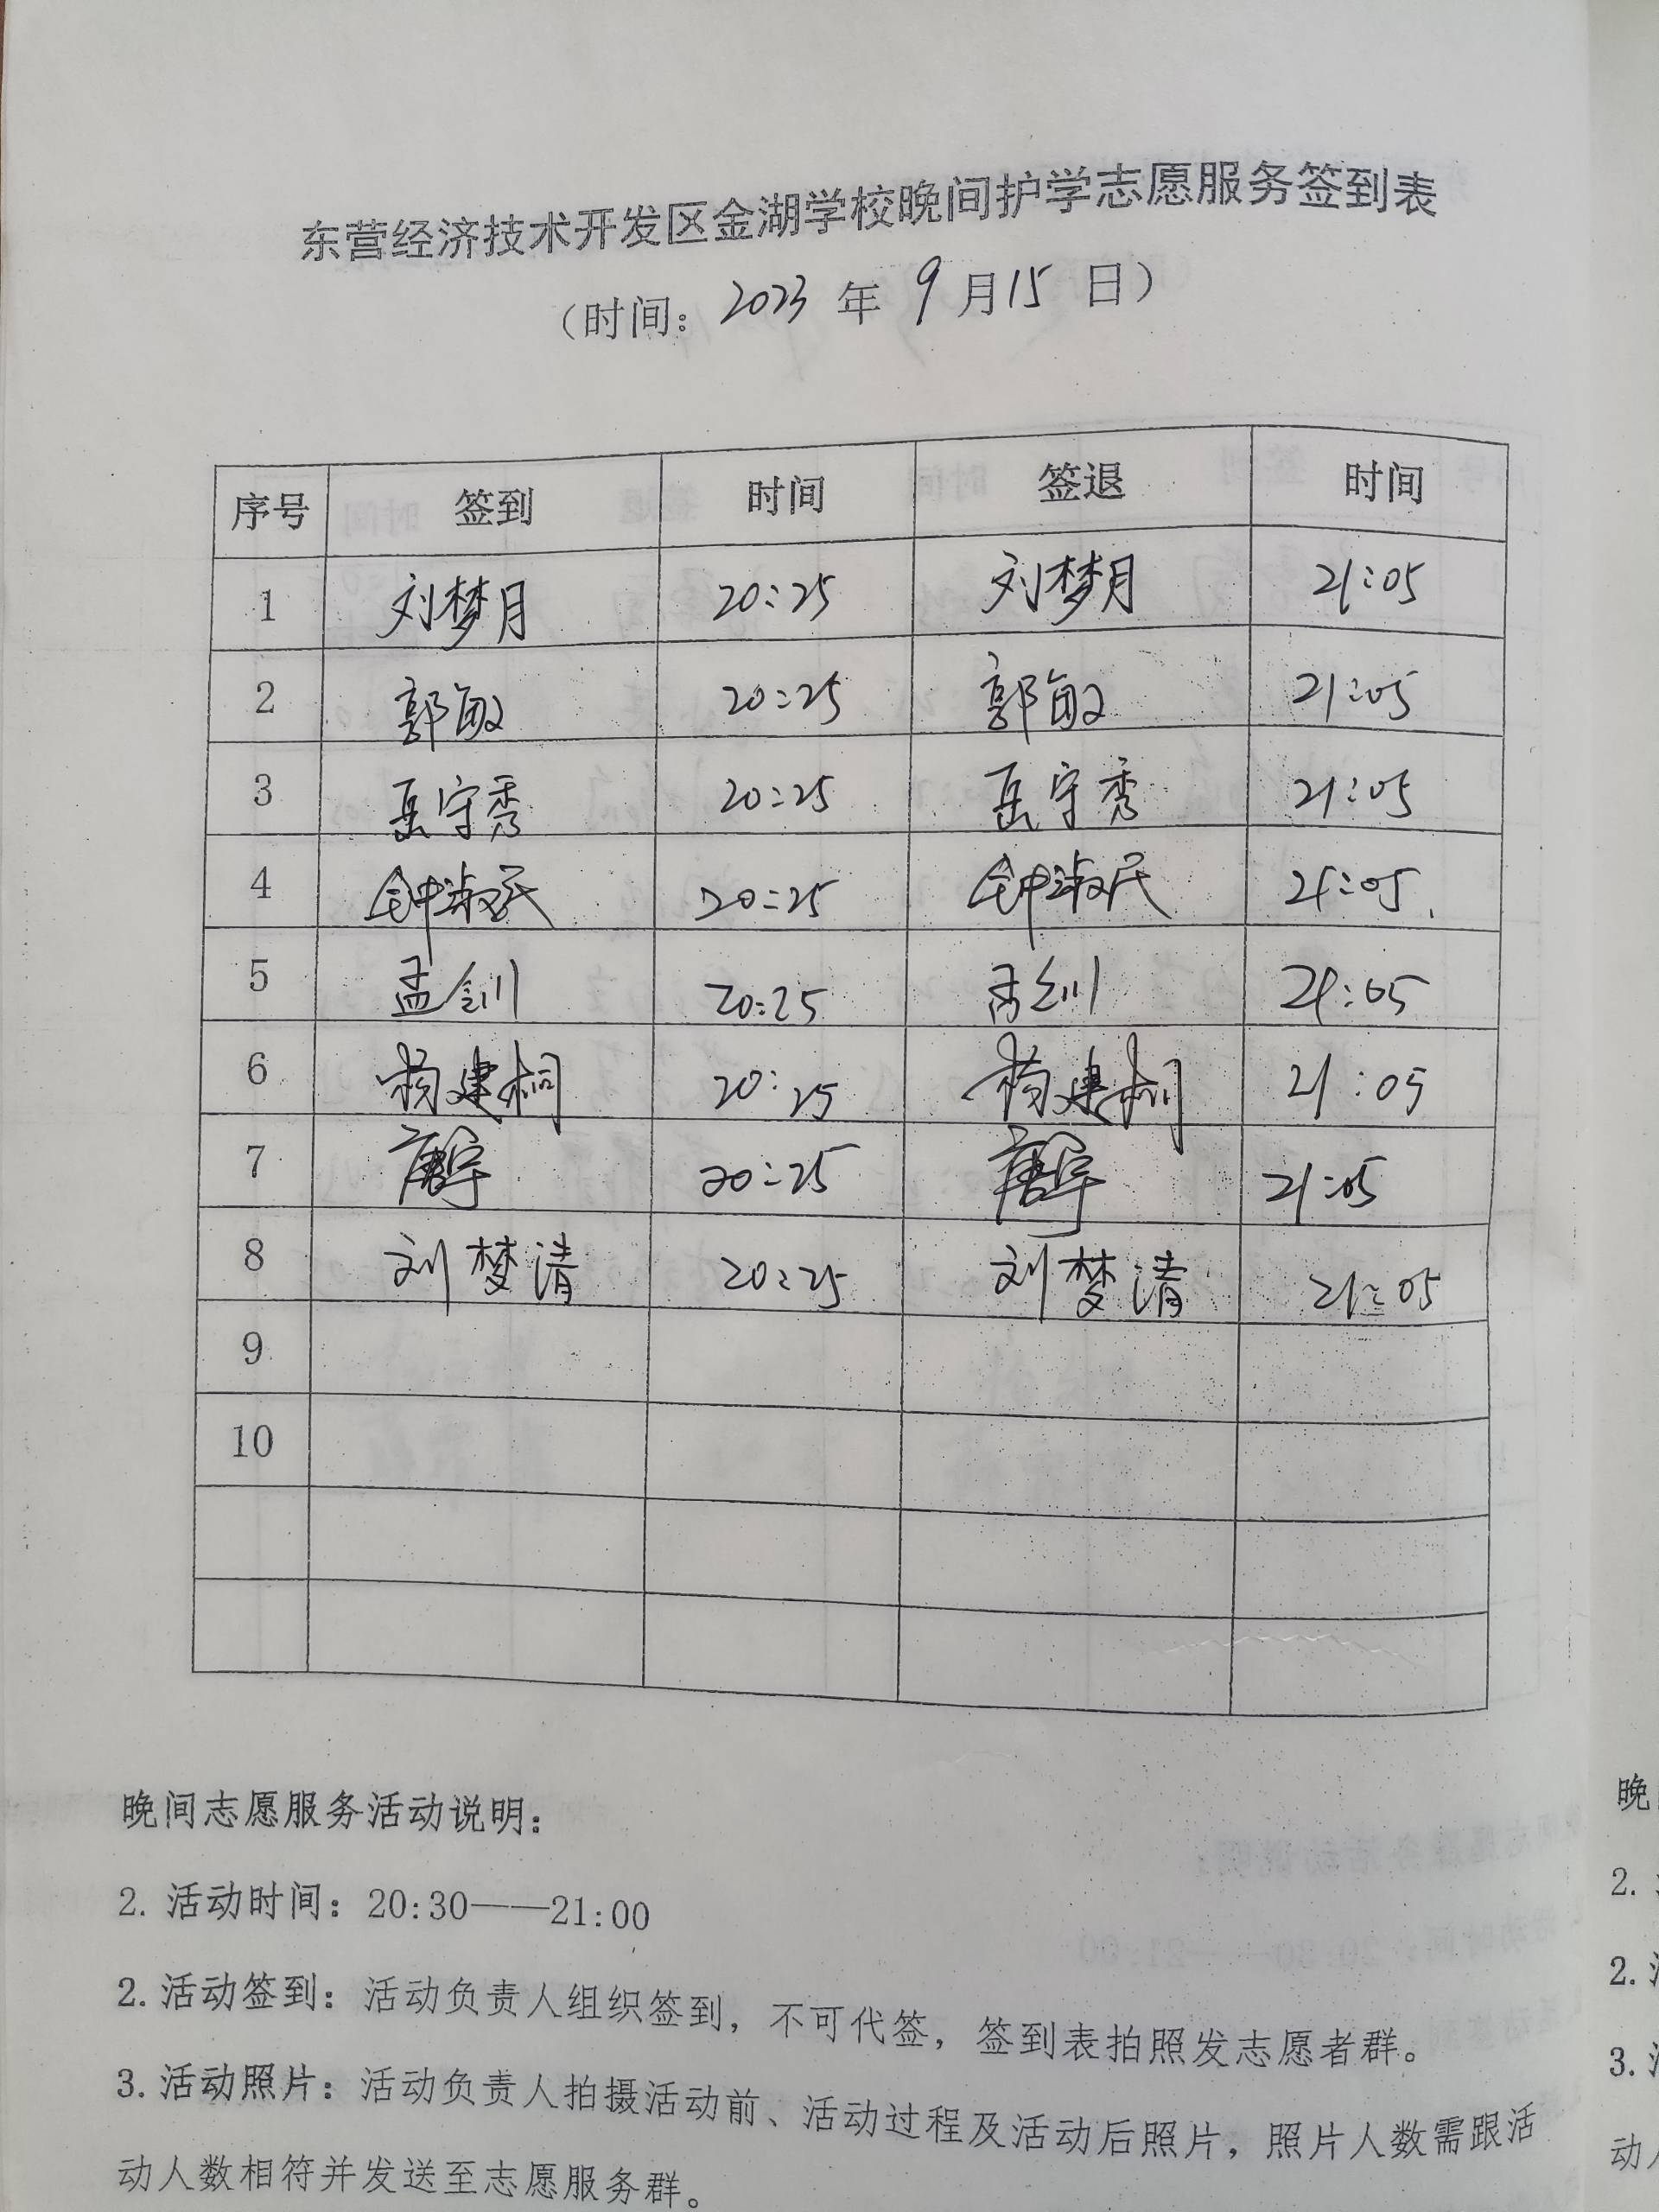 东营经济技术开发区金湖学校晚间护学志愿服务签到表
（时间：2023 年 9 月 15 日）
序号 签到 时间 签退 时间
1 刘梦月 20:25 刘梦月 21:05
2 郭敏 20:25 郭敏 21:05
3 岳守秀 20:25 岳守秀 21:05
4 钟淑民 20:25 钟淑民 21:05
5 孟钏 20:25 孟钏 21:05
6 杨建桐 20:25 杨建桐 21:05
7 唐宇 20:25 唐宇 21:05
8 刘梦清 20:25 刘梦清 21:05
9
10
晚间志愿服务活动说明：
2. 活动时间：20:30——21:00
2. 活动签到：活动负责人组织签到，不可代签，签到表拍照发志愿者群。
3. 活动照片：活动负责人拍摄活动前、活动过程及活动后照片，照片人数需跟活
动人数相符并发送至志愿服务群。
晚
2.
2.
3.
动